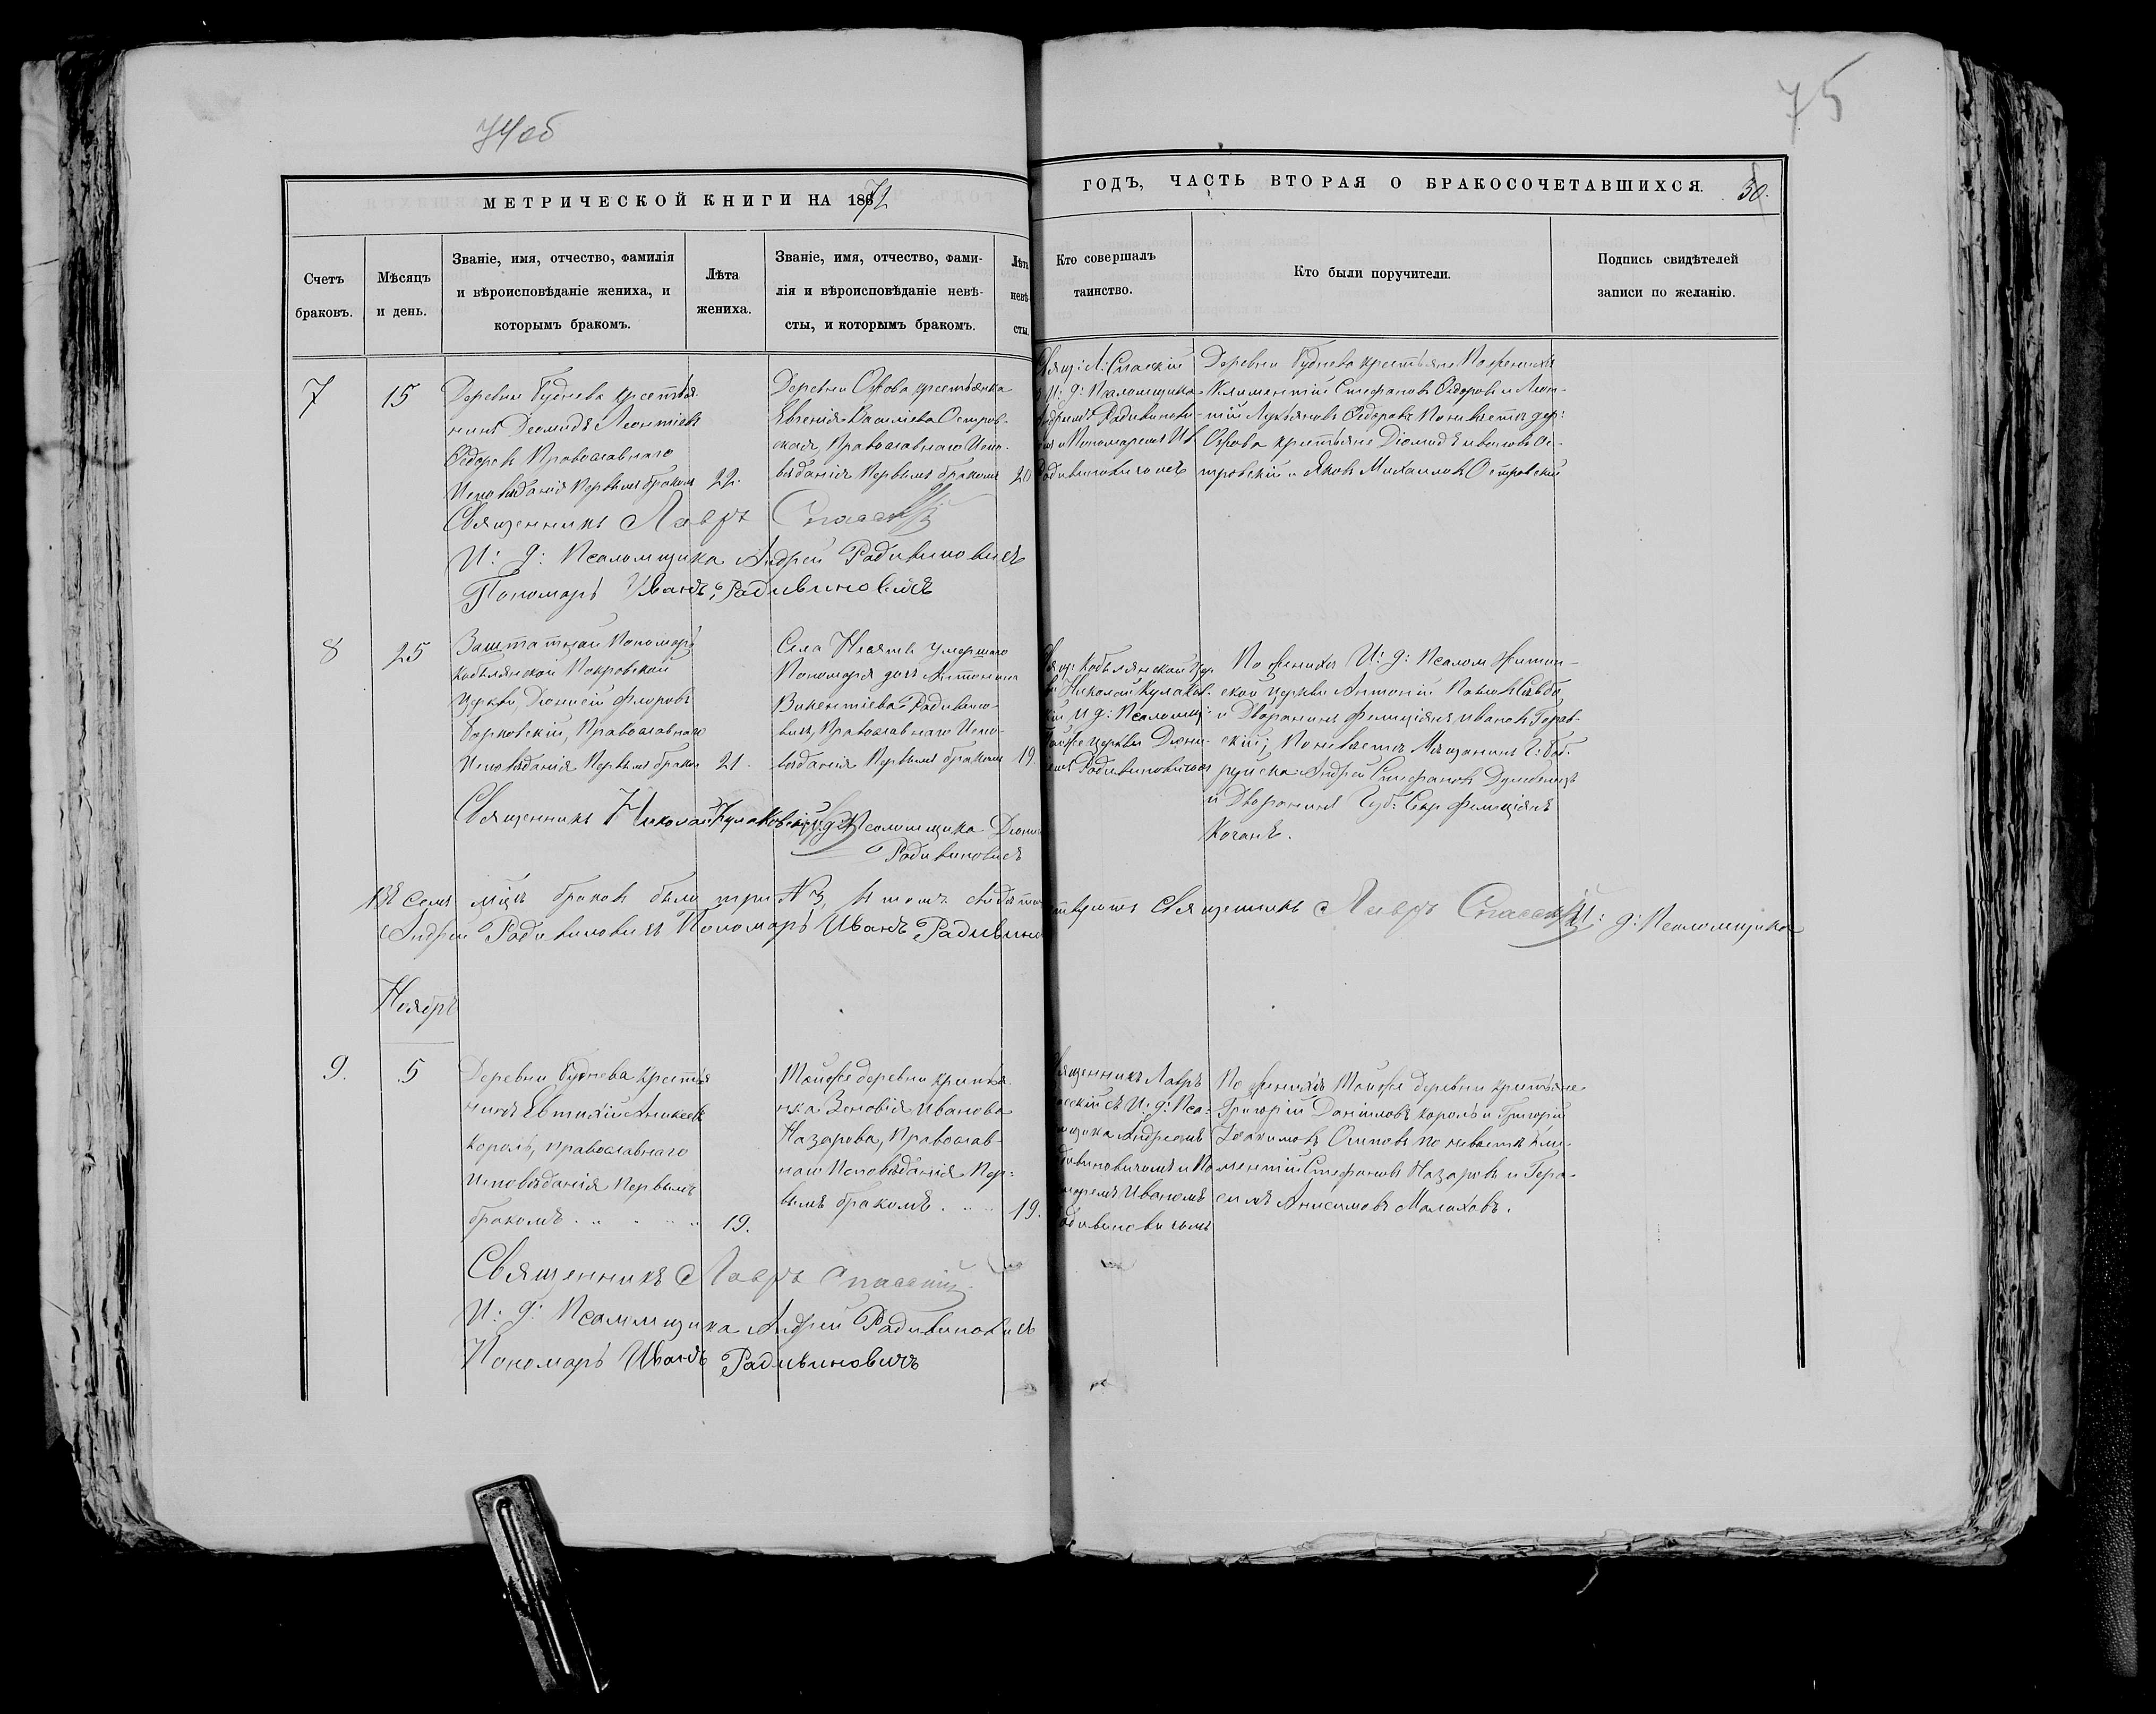 74об
75
МЕТРИЧЕСКОЙ КНИГИ НА 1872
ГОДЪ, ЧАСТЬ ВТОРАЯ О БРАКОСОЧЕТАВШИХСЯ.
50.
Счетъ
браковъ.
Мѣсяцъ
и день.
Званіе, имя, отчество, фамилія
и вѣроисповѣданіе жениха, и
которымъ бракомъ.
Лѣта
жениха.
Званіе, имя, отчество, фами-
лія и вѣроисповѣданіе невѣ-
сты, и которымъ бракомъ.
Лѣта
невѣ-
сты.
Кто совершалъ
таинство.
Кто были поручители.
Подпись свидѣтелей
записи по желанію.
7
15
Деревни Буднева крестья-
нинъ Деомидъ Леонтіевъ
Ѳедоровъ Православнаго
Исповѣданія Первымъ бракомъ
22.
Деревни Острова крестьянка
Евгенія Василіева Остров-
ская, Православнаго Испо-
вѣданія Первымъ бракомъ
20
Свящ: Л: Спаскій
И: д: Псаломщика
Андреемъ Радивинови-
чемъ и Пономаремъ Ив
Радивиновичомъ
Деревни Буднева крестьяне По женихѣ
Климентій Стефановъ Ѳедоровъ и Леон-
тій Лукьяновъ Ѳедоровъ По невѣстѣ дер:
Острова крестьяне Діомидъ Ивановъ Ос-
тровскій и Яковъ Михаиловъ Островскій
Священникъ Лавръ Спасскій
И: д: Псаломщика Андрей Радивиновичъ
Пономарь Иванъ Радивиновичъ
8
25
Заштатный Пономарь
Кобылянской Покровской
Церкви, Діонисій Флоровъ
Барковскій, Православнаго
Исповѣданія Первымъ бракомъ
21.
Села Несятъ умершаго
Пономаря дочь Антонина
Викентіева Радивино-
вичъ, Православнаго Испо-
вѣданія Первымъ бракомъ
19.
Свящ: Кобылянской Цер
Николай Кулаков-
И д: Псаломщ:
тойже церкви Діони-
Радивиновичомъ
По женихѣ И: д: Псалом
ской церкви Антоній Павловъ
и Дворянинъ Фелиціянъ Ивановъ
скій; По невѣстѣ Мѣщанинъ Г: Боб-
руйска Андрей Стефановъ
и Дворянинъ Губ: Секр Фелиціянъ
Коганъ.
Священникъ Николай Кулаковскій И: д: Псаломщика Діони
Радивиновичъ
Въ семъ м҃цѣ браковъ было три № 3, въ томъ свидѣтельствуютъ Священникъ Лавръ Спасскій И: д: Псаломщика
Андрей Радивиновичъ Пономарь Иванъ Радивинов
Ноябрь
9.
5
Деревни Буднева крестья
нинъ Евтихій Аникеевъ
Король, православнаго
исповѣданія первымъ
бракомъ
19.
Тойже деревни крестья-
нка Зеновія Иванова
Назарова, Православ-
наго Исповѣданія Пер-
вымъ бракомъ
19.
Священникъ Лавръ
Спасскій съ И: д: Пса-
ломщика Андреемъ
Радивиновичомъ и По
номаремъ Иваномъ
Радивиновичомъ
По женихѣ Тойже деревни крестьяне
Григорій Даніиловъ Король и Григорій
Іоакимовъ Осиповъ по невѣстѣ Кли-
ментій Стефановъ Назаровъ и Гера-
симъ Анисимовъ Малаховъ.
Священникъ Лавръ Спасскій
И: д: Псаломщика Андрей Радивиновичъ
Пономарь Иванъ Радивиновичъ